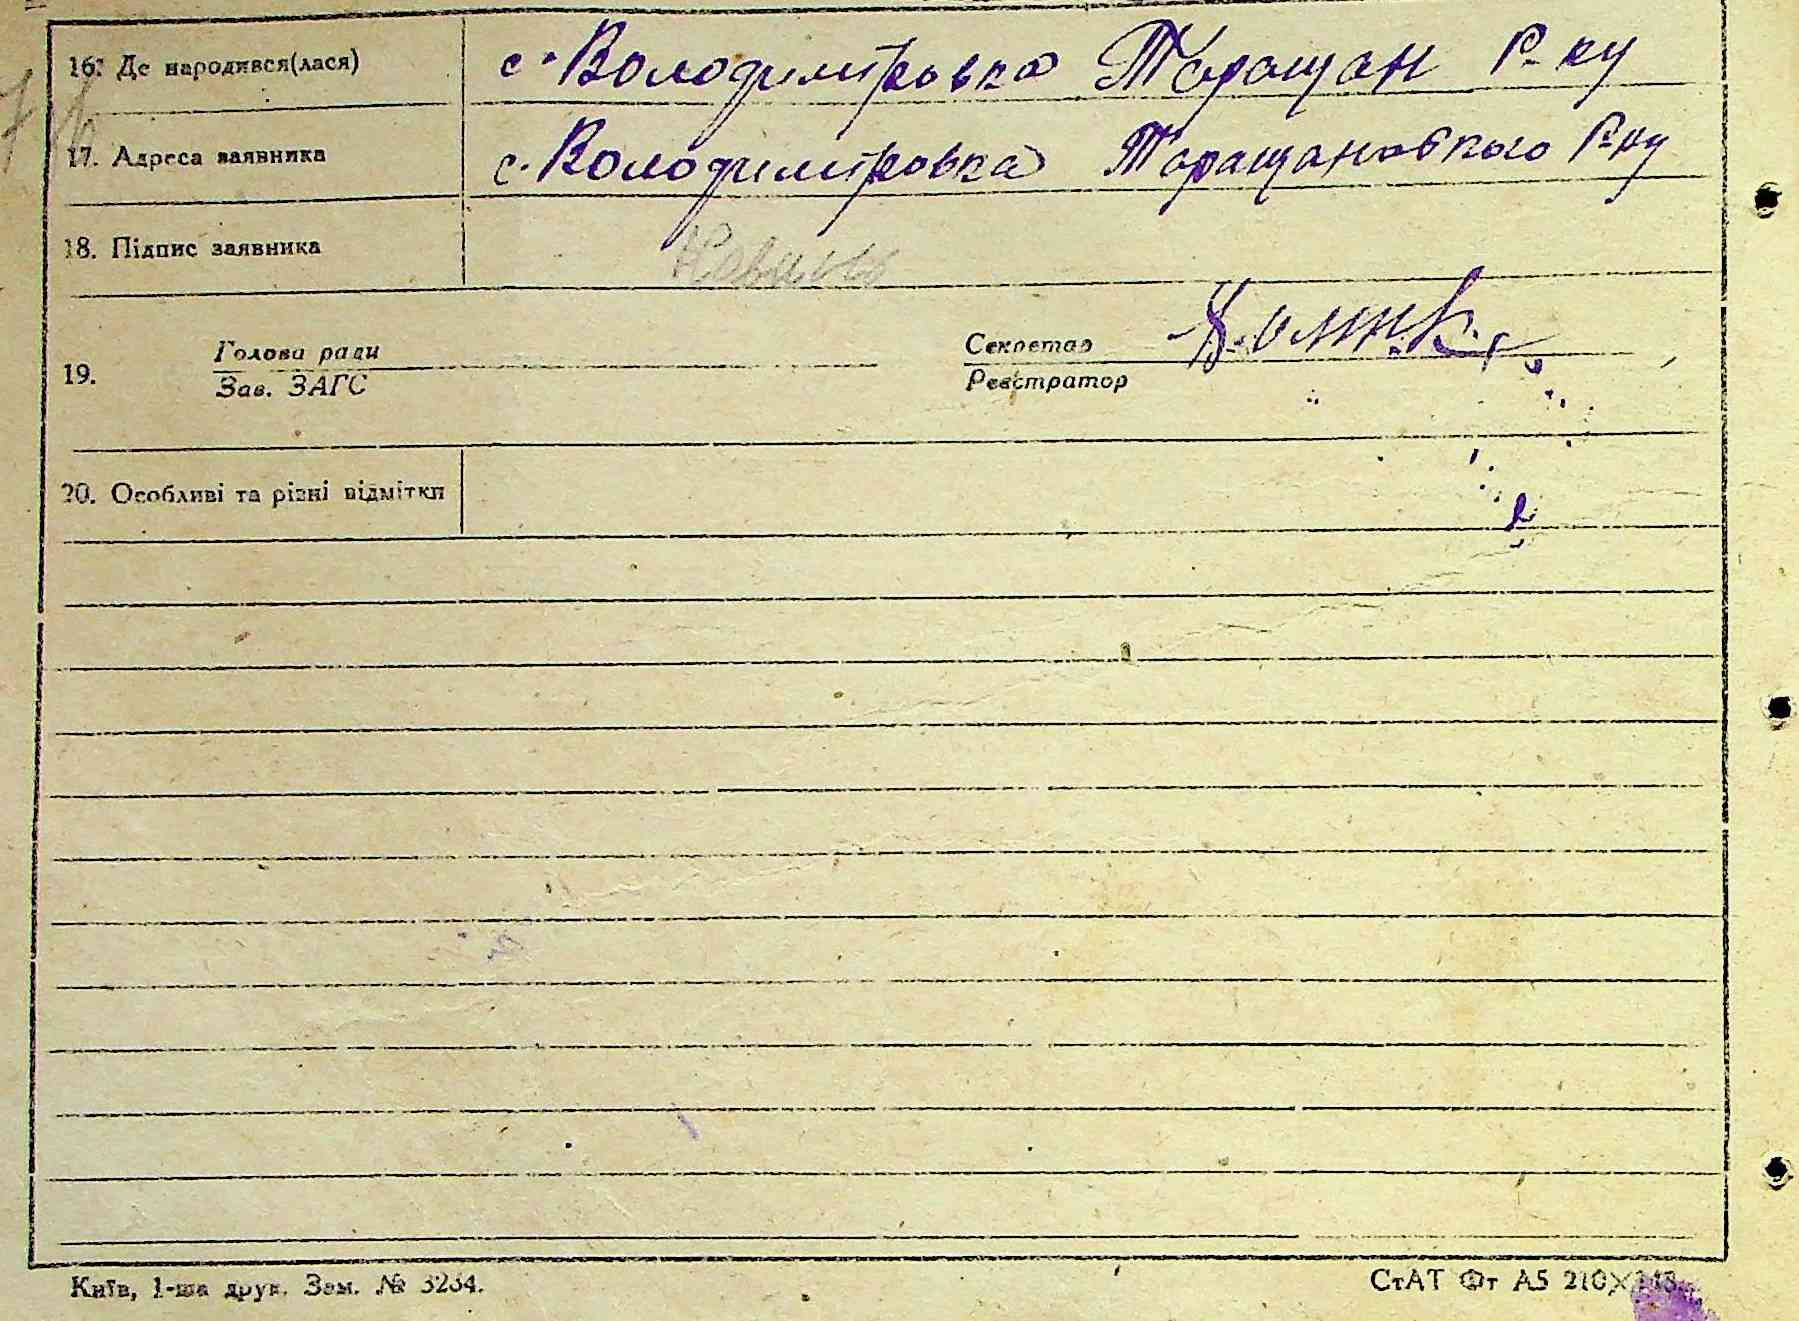 16. Де народився(лася) с. Володимирровка Таращан р-ну
17. Адреса заявника с. Володимирровка Таращановського р-ну
18. Підпис заявника
Голова ради Секретар
19.
Зав. ЗАГС Реєстратор
20. Особливі та різні відмітки
Київ, 1-ша друк. Зам. № 3234. СтАТ Фт А5 210×148